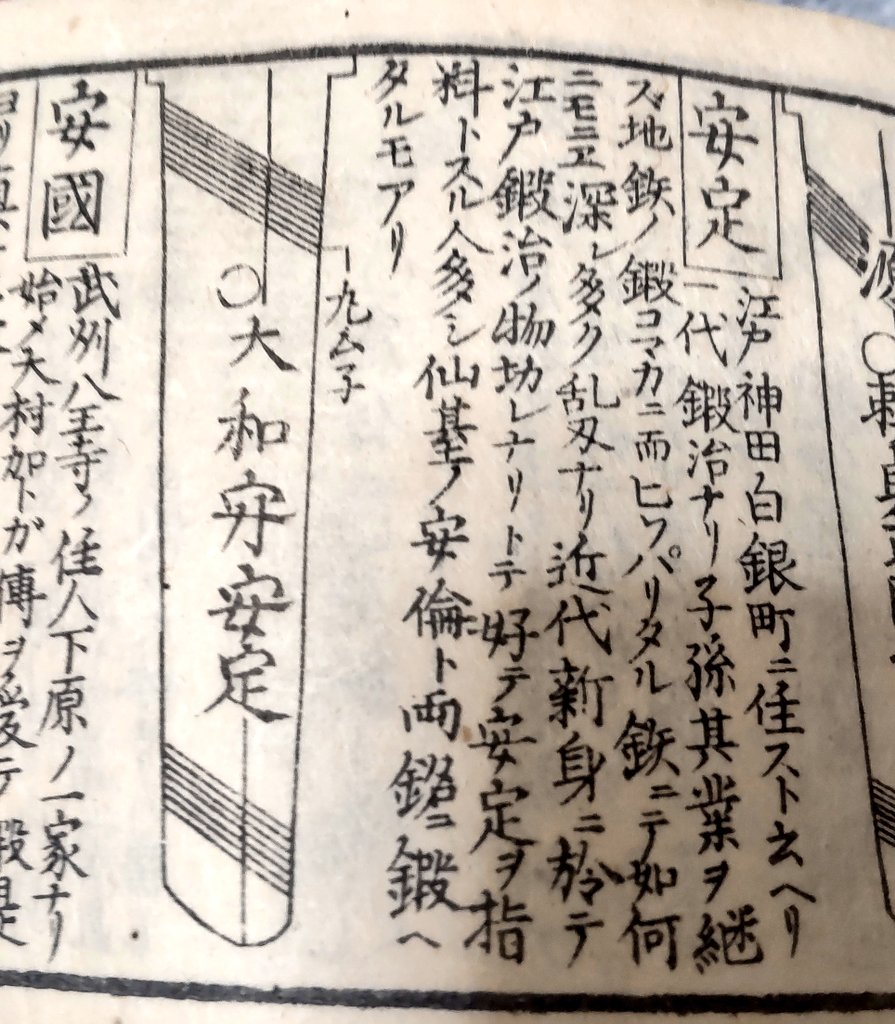 安定
江戸神田白銀町ニ住スト云ヘリ
一代鍛冶ナリ子孫其業ヲ継
ズ地鉄ノ鍛コマカニ而ヒツパリタル鉄ニテ如何
ニモニヱ深ク多ク乱刃ナリ近代新身ニ於テ
江戸鍛冶ノ物切レナリトテ好テ安定ヲ指
料トスル人多シ仙基ノ安倫ト両銘ニ鍛ヘ
タルモアリ
○大和守安定
安國
武州八王寺ノ住人下原ノ一家ナリ
始メ大村加卜ガ傳ヲ受テ